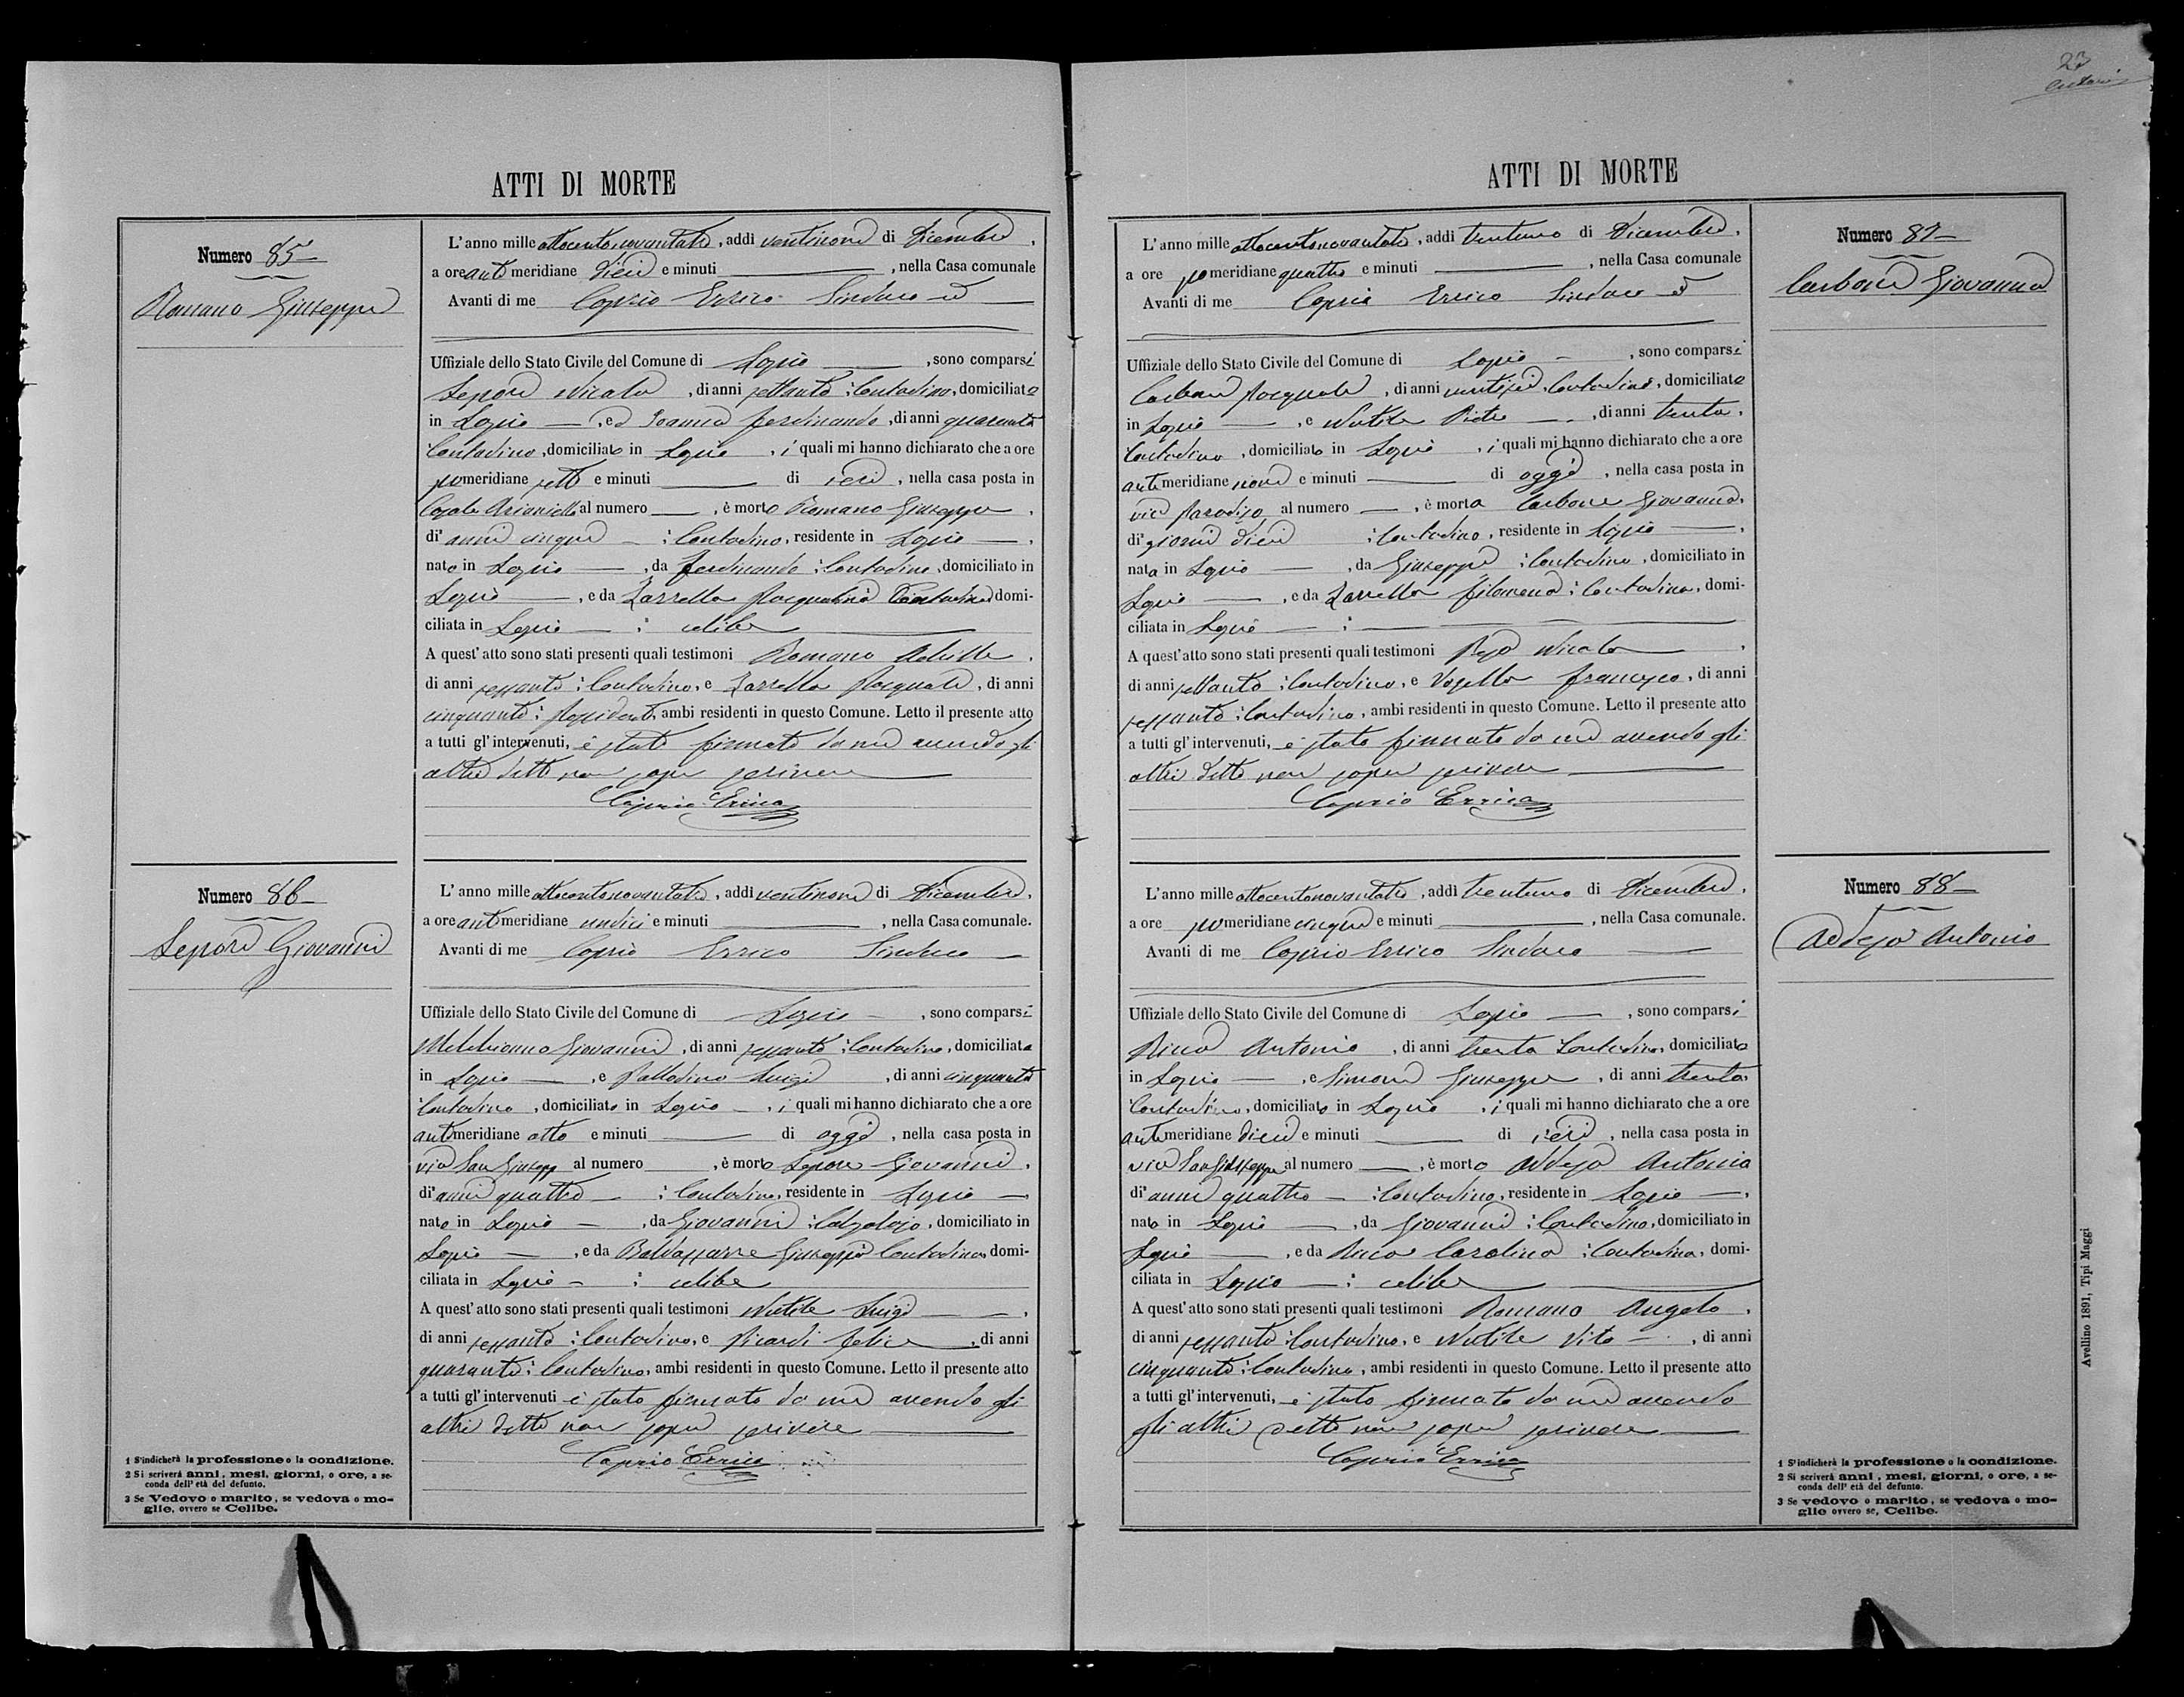 ATTI DI MORTE
Numero 85
Romano Giuseppe
L'anno mille ottocentonovantatre, addi ventinove di Dicembre,
a ore anti meridiane dieci e minuti , nella Casa comunale
Avanti di me Caprio Errico Sindaco ed
Uffiziale dello Stato Civile del Comune di Lapio , sono comparsi
Lepore Nicola , di anni settanta : Contadino, domiciliato
in Lapio , ed Ioanna Ferdinando , di anni quaranta
Contadino , domiciliato in Lapio , i quali mi hanno dichiarato che a ore
pomeridiane sette e minuti di ieri , nella casa posta in
Casale Arianiello al numero , è morto Romano Giuseppe ,
di anni cinque : Contadino, residente in Lapio ,
nato in Lapio , da Ferdinando : Contadino, domiciliato in
Lapio , e da Zarrella Pasqualina Contadina domi-
ciliata in Lapio : celibe
A quest'atto sono stati presenti quali testimoni Romano Achille ,
di anni sessanta : Contadino, e Zarrella Pasquale , di anni
cinquanta : Possidente, ambi residenti in questo Comune. Letto il presente atto
a tutti gl'intervenuti, è stato firmato da me avendo gli
altri detto non saper scrivere
Caprio Errico
Numero 86
Lepore Giovanni
L'anno mille ottocentonovantatre, addi ventinove di Dicembre,
a ore anti meridiane undici e minuti , nella Casa comunale.
Avanti di me Caprio Errico Sindaco
Uffiziale dello Stato Civile del Comune di Lapio , sono comparsi
Melchionno Giovanni , di anni sessanta : Contadino, domiciliato
in Lapio , e Palladino Luigi , di anni cinquanta
Contadino , domiciliato in Lapio , i quali mi hanno dichiarato che a ore
antimeridiane otto e minuti di oggi , nella casa posta in
via San Giuseppe al numero , è morto Lepore Giovanni ,
di anni quattro : Contadino, residente in Lapio ,
nato in Lapio , da Giovanni : Calzolajo, domiciliato in
Lapio , e da Baldassarre Giuseppa Contadina, domi-
ciliata in Lapio : celibe
A quest'atto sono stati presenti quali testimoni Nutile Luigi ,
di anni sessanta : Contadino, e Picardi Felice , di anni
quaranta : Contadino, ambi residenti in questo Comune. Letto il presente atto
a tutti gl'intervenuti è stato firmato da me avendo gli
altri detto non saper scrivere
Caprio Errico
1 S'indicherà la professione o la condizione.
2 Si scriverà anni, mesi, giorni, o ore, a se-
conda dell' età del defunto.
3 Se Vedovo o marito, se vedova o mo-
glie, ovvero se Celibe.
23
ATTI DI MORTE
Numero 87
Carbone Giovanna
L'anno mille ottocentonovantatre, addi trentuno di Dicembre,
a ore pomeridiane quattro e minuti , nella Casa comunale
Avanti di me Caprio Errico Sindaco ed
Uffiziale dello Stato Civile del Comune di Lapio , sono comparsi
Carbone Pasquale , di anni ventisei, Contadino, domiciliato
in Lapio , e Nutile Pietro , di anni trenta,
Contadino , domiciliato in Lapio , i quali mi hanno dichiarato che a ore
antimeridiane nove e minuti di oggi , nella casa posta in
via Paradiso al numero , è morta Carbone Giovanna,
di giorni dieci : Contadino, residente in Lapio ,
nata in Lapio , da Giuseppe : Contadino, domiciliato in
Lapio , e da Zarrella Filomena : Contadina, domi-
ciliata in Lapio :
A quest'atto sono stati presenti quali testimoni Nicola ,
di anni settanta : Contadino, e Francesco, di anni
sessanta : Contadino, ambi residenti in questo Comune. Letto il presente atto
a tutti gl'intervenuti, è stato firmato da me avendo gli
altri detto non saper scrivere
Caprio Errico
Numero 88
Addeja Antonio
L'anno mille ottocentonovantatre, addi trentuno di Dicembre,
a ore pomeridiane cinque e minuti , nella Casa comunale.
Avanti di me Caprio Errico Sindaco
Uffiziale dello Stato Civile del Comune di Lapio , sono comparsi
Ricca Antonio , di anni trenta Contadino, domiciliato
in Lapio , e Simone Giuseppe , di anni trenta
Contadino, domiciliato in Lapio , i quali mi hanno dichiarato che a ore
antimeridiane dieci e minuti di ieri , nella casa posta in
via San Giuseppe al numero , è morto Addeja Antonio
di anni quattro : Contadino, residente in Lapio ,
nato in Lapio , da Giovanni : Contadino, domiciliato in
Lapio , e da Ricca Carolina : Contadina, domi-
ciliata in Lapio : celibe
A quest'atto sono stati presenti quali testimoni Romano Angelo ,
di anni sessanta : Contadino, e Nutile Vito , di anni
cinquanta : Contadino, ambi residenti in questo Comune. Letto il presente atto
a tutti gl'intervenuti, è stato firmato da me avendo
gli altri detto non saper scrivere
Caprio Errico
1 S'indicherà la professione o la condizione.
2 Si scriverà anni, mesi, giorni, o ore, a se-
conda dell' età del defunto.
3 Se vedovo o marito, se vedova o mo-
glie ovvero se, Celibe.
Avellino 1891, Tipi Maggi